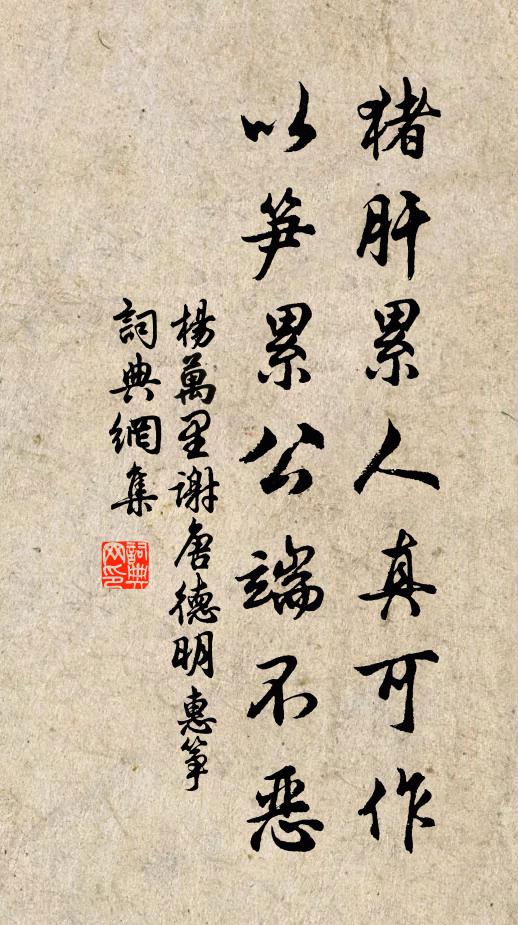 猪肝累人真可作
以笋累公端不恶
楊萬里謝唐德明惠笋
詞典網集
詞典
网印